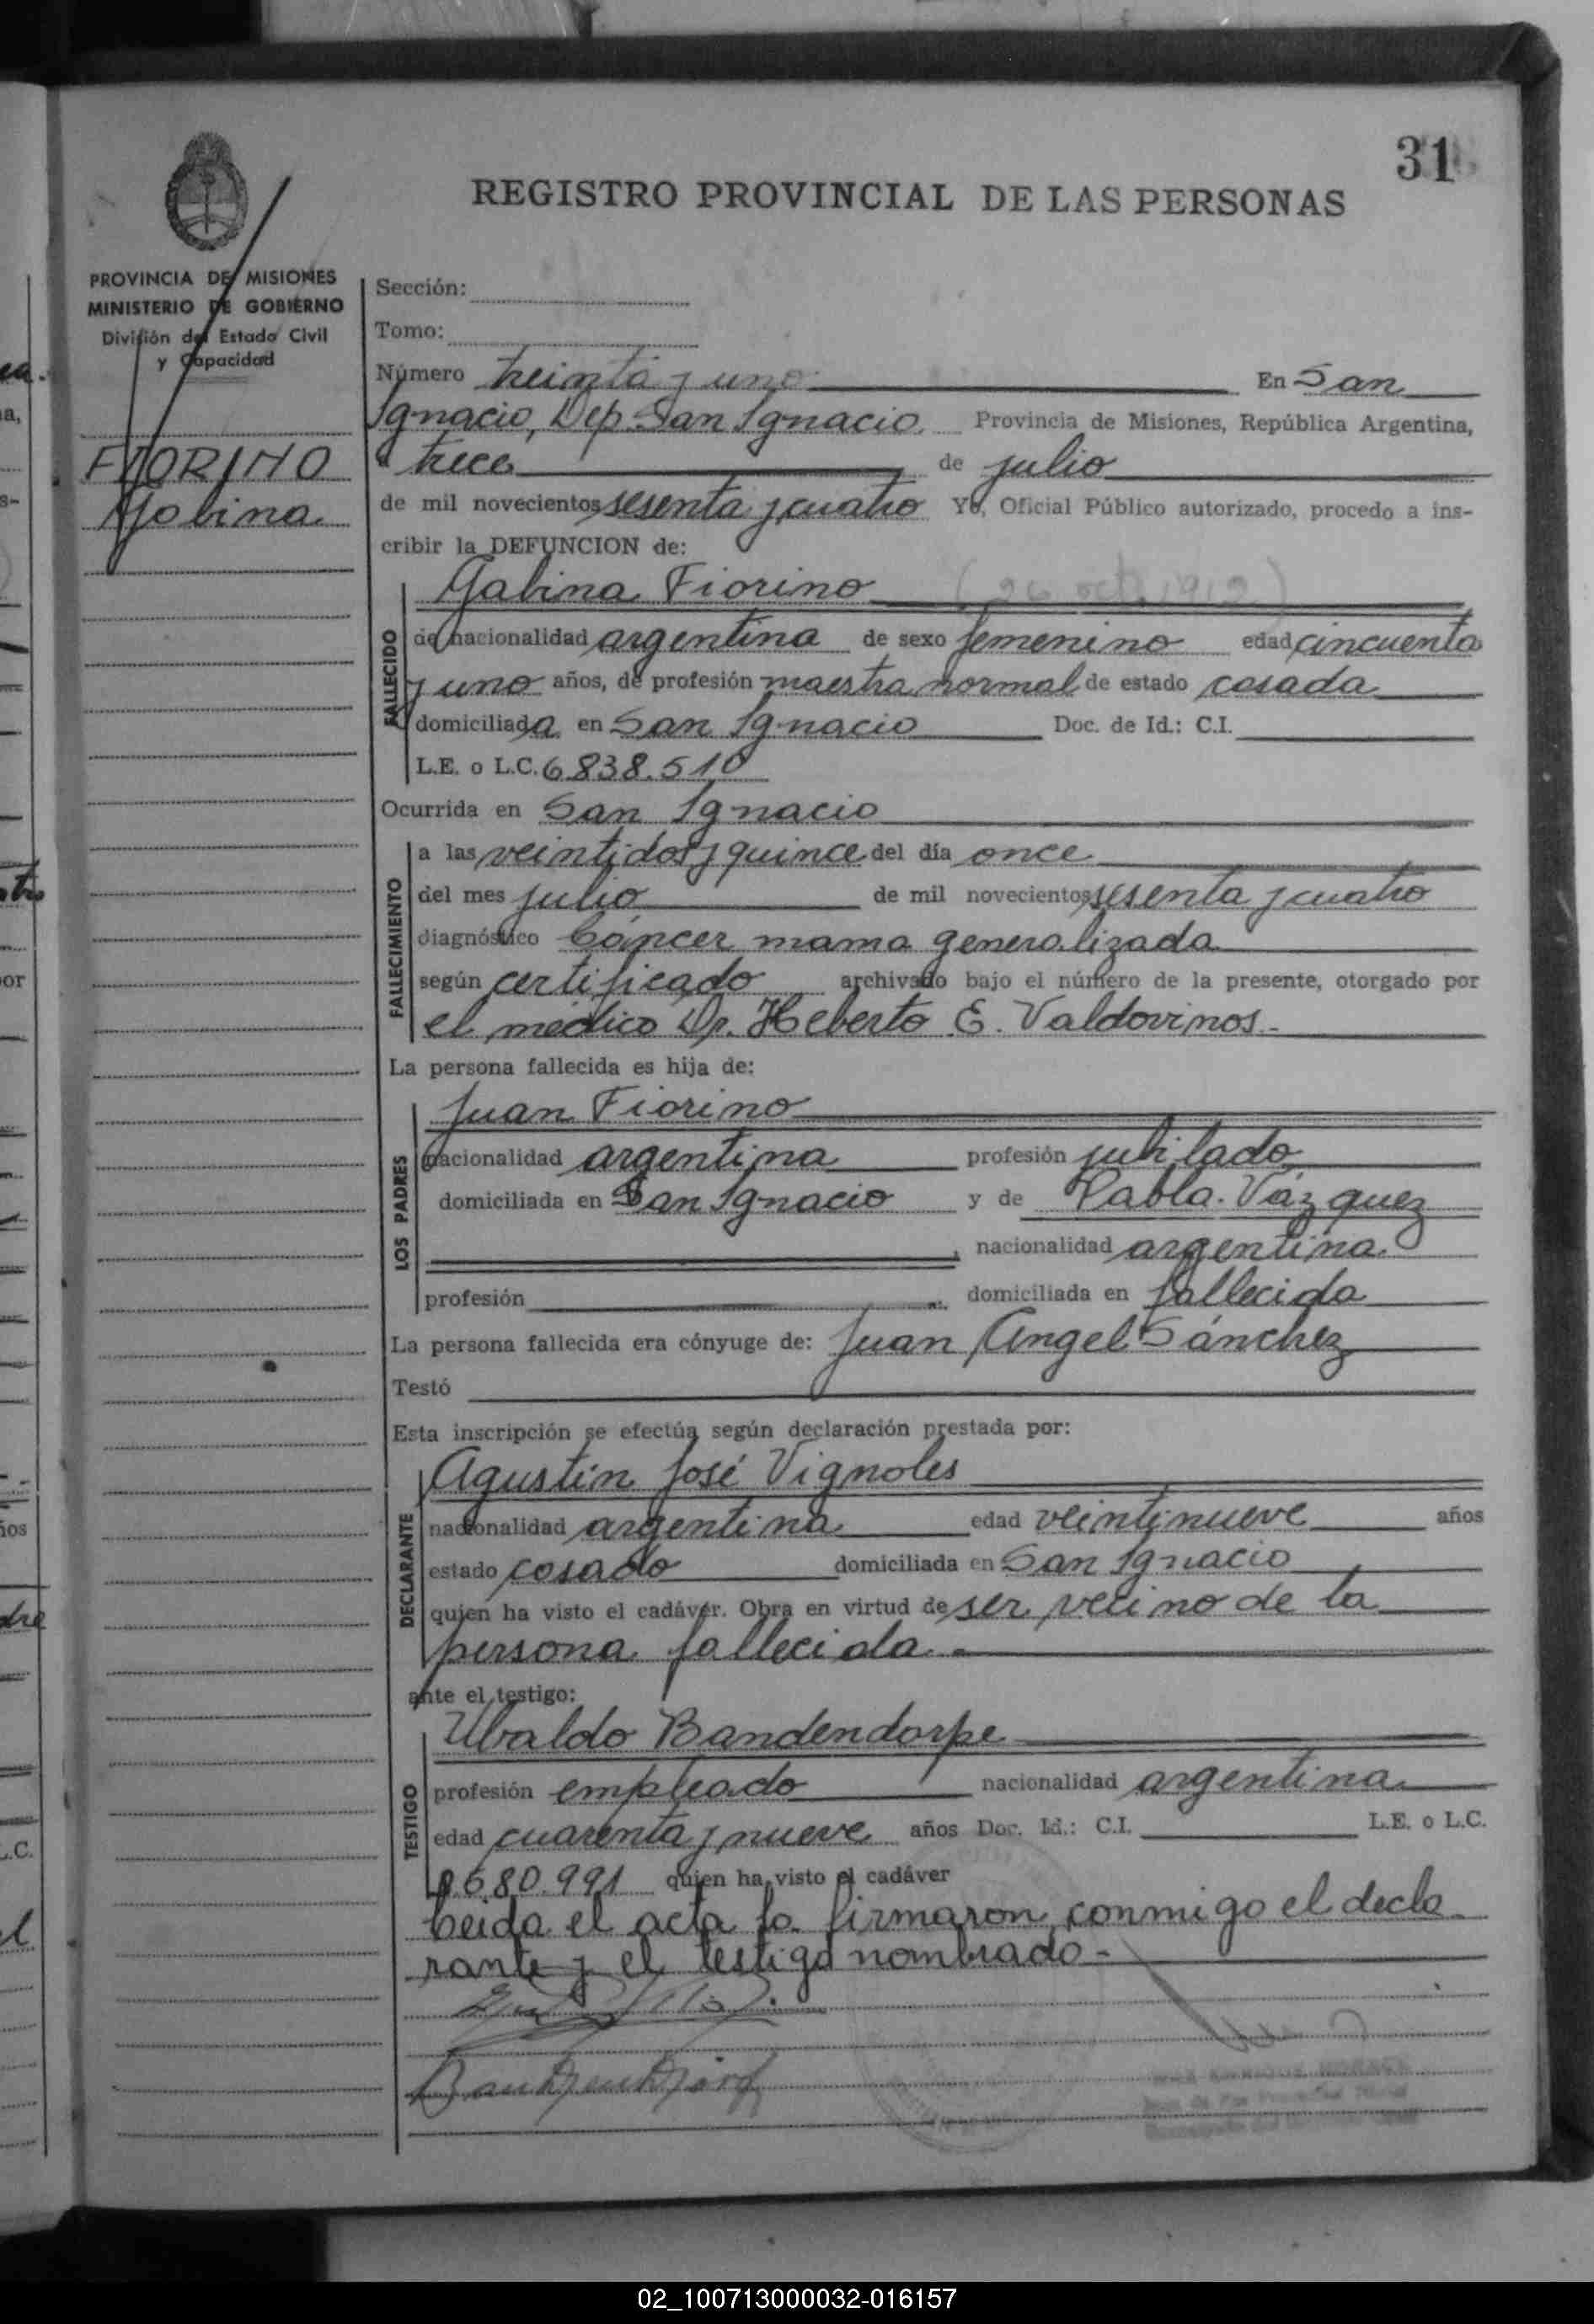 31
REGISTRO PROVINCIAL DE LAS PERSONAS
PROVINCIA DE MISIONES
MINISTERIO DE GOBIERNO
División del Estado Civil
y Capacidad
FIORINO
Gabina
Sección:
Tomo:
Número treinta y uno En San
Ignacio, Dep. San Ignacio Provincia de Misiones, República Argentina,
a trece de julio
de mil novecientos sesenta y cuatro Yo, Oficial Público autorizado, procedo a ins-
cribir la DEFUNCION de:
Gabina Fiorino (26 oct. 1912)
FALLECIDO
de nacionalidad argentina de sexo femenino edad cincuenta
y uno años, de profesión maestra normal de estado casada
domiciliada en San Ignacio Doc. de Id.: C.I.
L.E. o L.C. 6.838.510
Ocurrida en San Ignacio
FALLECIMIENTO
a las veintidos y quince del día once
del mes julio de mil novecientos sesenta y cuatro
diagnóstico Cáncer mama generalizada
según certificado archivado bajo el número de la presente, otorgado por
el médico Dr. Heberto E. Valdovinos.-
La persona fallecida es hija de:
LOS PADRES
Juan Fiorino
nacionalidad argentina profesión jubilado
domiciliada en San Ignacio y de Pabla Vázquez
, nacionalidad argentina
profesión domiciliada en fallecida
La persona fallecida era cónyuge de: Juan Angel Sánchez
Testó
Esta inscripción se efectúa según declaración prestada por:
DECLARANTE
Agustín José Vignoles
nacionalidad argentina edad veintinueve años
estado casado domiciliada en San Ignacio
quien ha visto el cadáver. Obra en virtud de ser vecino de la
persona fallecida.-
ante el testigo:
TESTIGO
Ubaldo Bandendorpe
profesión empleado nacionalidad argentina
edad cuarenta y nueve años Doc. Id.: C.I. L.E. o L.C.
680.991 quien ha visto el cadáver
Leida el acta la firmaron conmigo el decla-
rante y el testigo nombrado.-
02_100713000032-016157